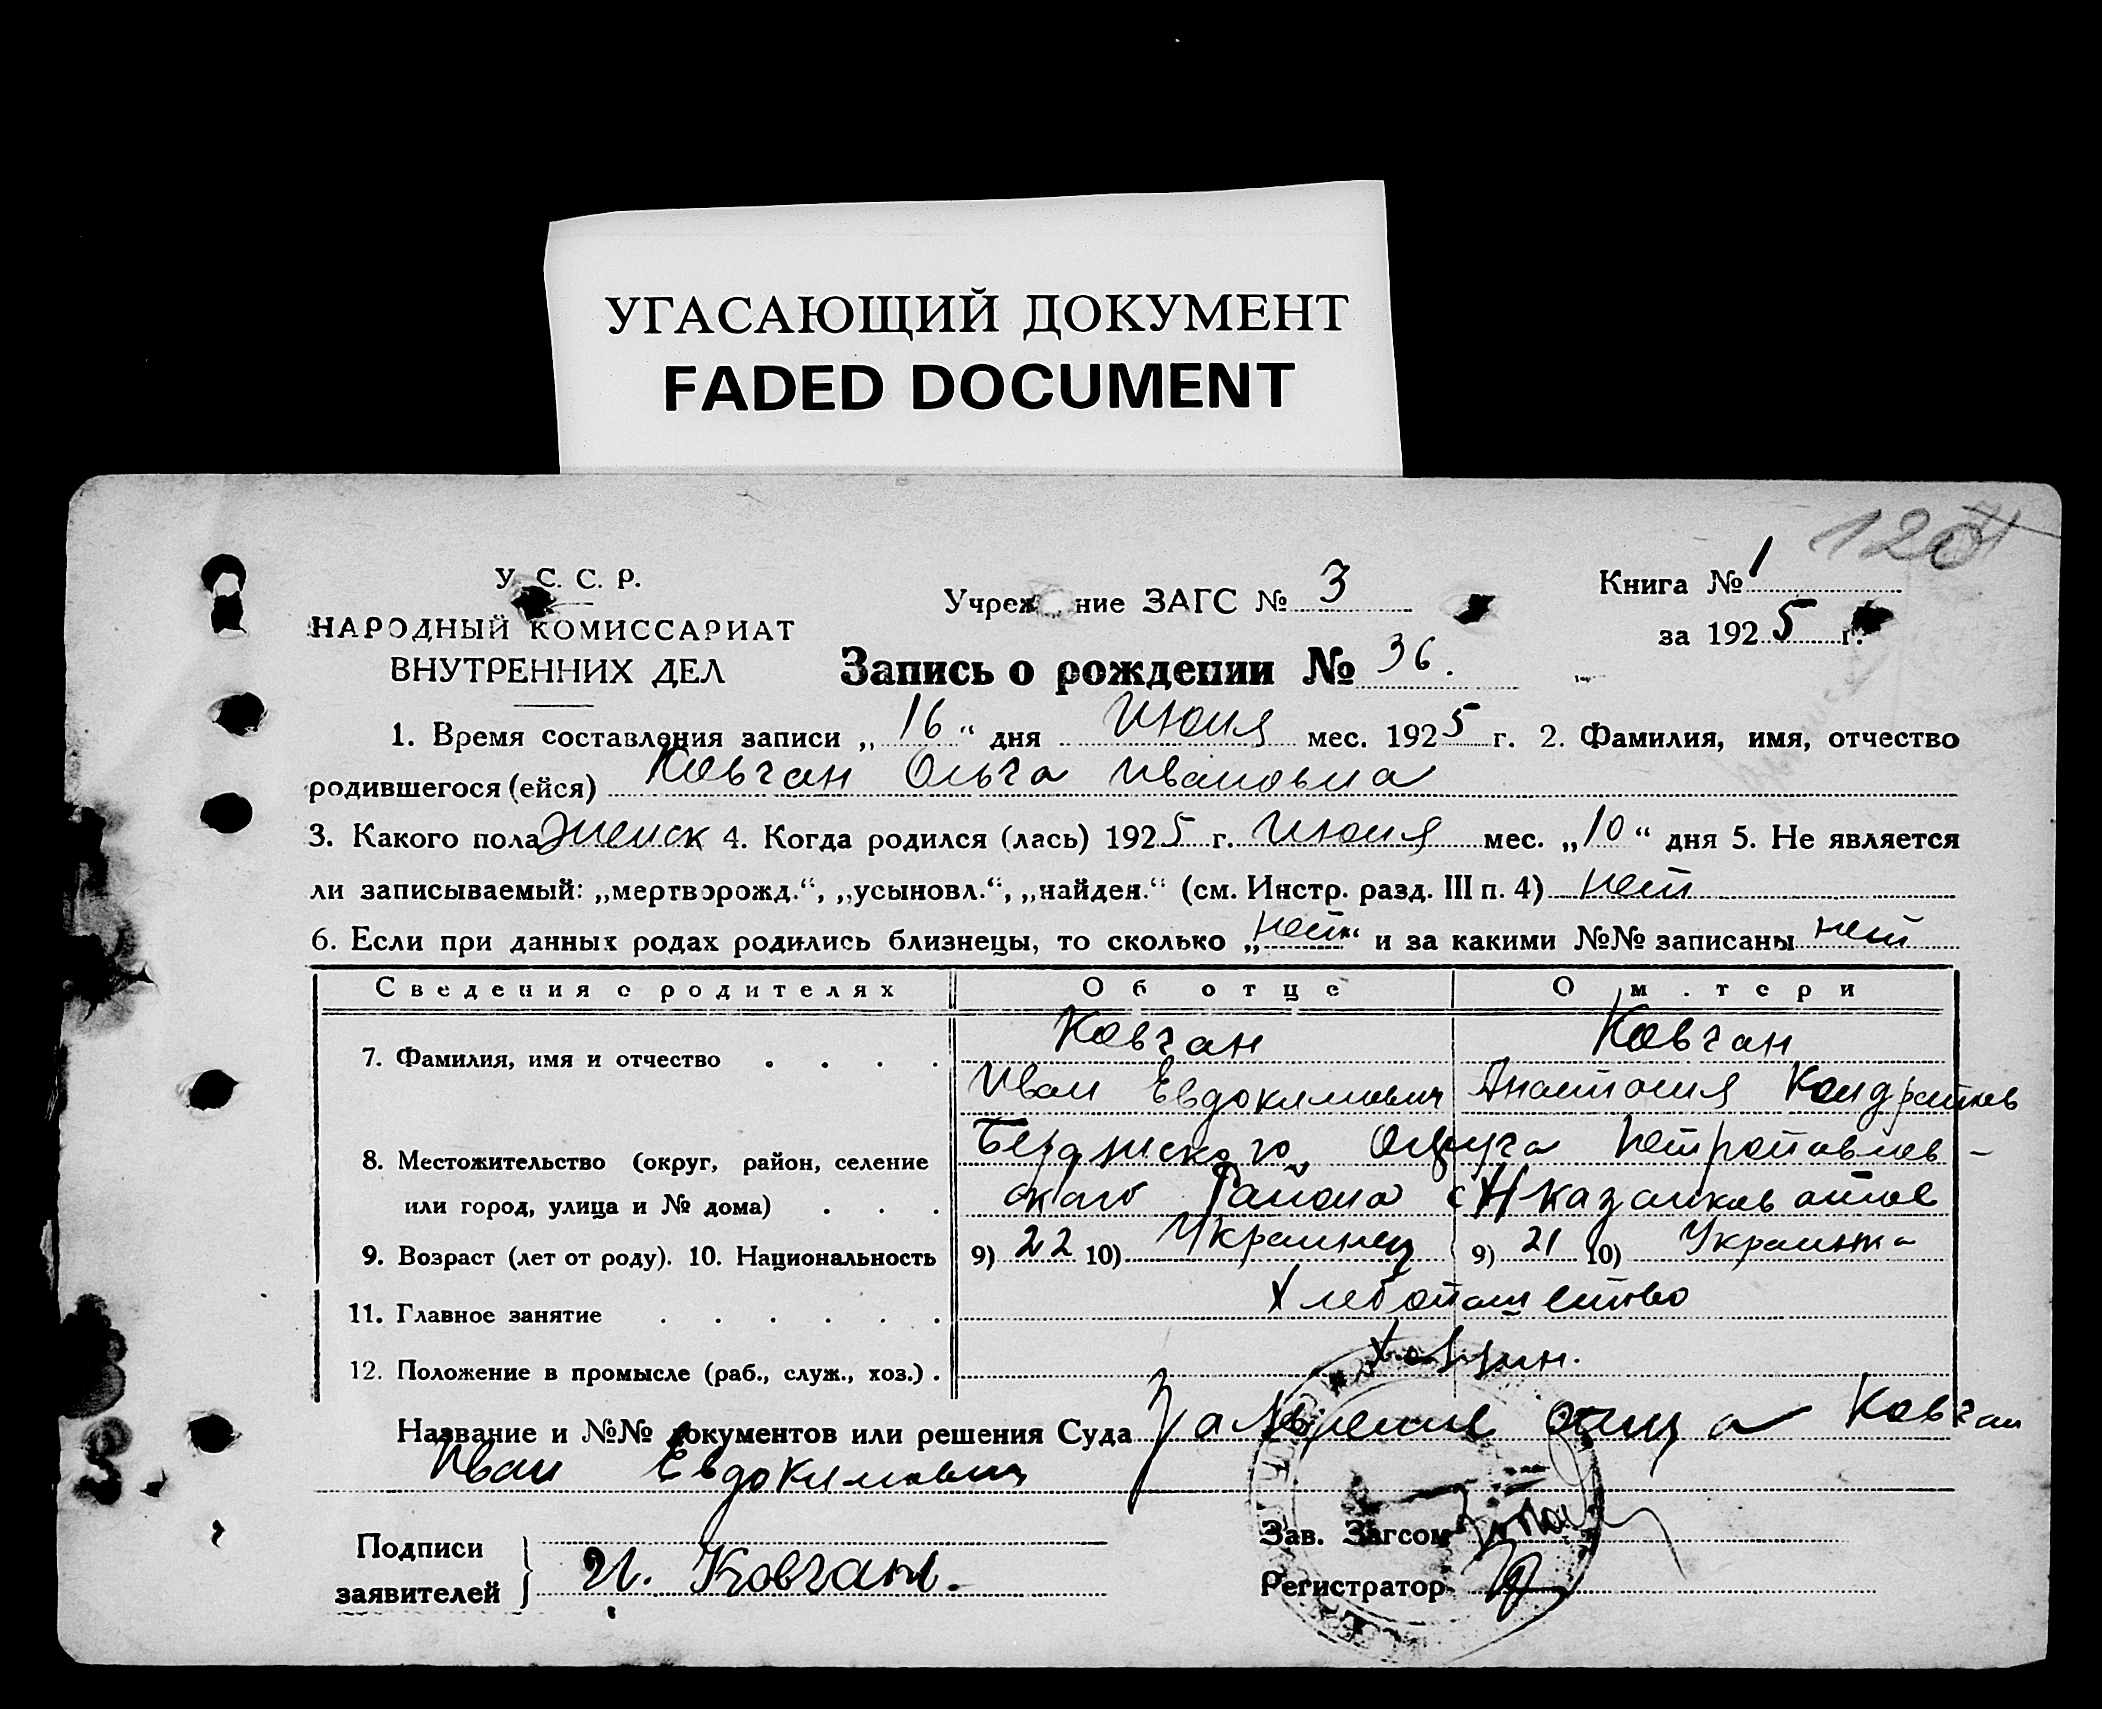 УГАСАЮЩИЙ ДОКУМЕНТ
FADED DOCUMENT
120
У. С. С. Р.
НАРОДНЫЙ КОМИССАРИАТ
ВНУТРЕННИХ ДЕЛ
Учреж ние ЗАГС № 3
Книга № 1
за 1925 г.
Запись о рождении № 36.
1. Время составления записи „16“ дня Июля мес. 1925 г. 2. Фамилия, имя, отчество
родившегося (ейся) Ковган Ольга Ивановна
3. Какого пола Женск 4. Когда родился (лась) 1925 г. Июля мес. „10“ дня 5. Не является
ли записываемый: „мертворожд.“, „усыновл.“, „найден.“ (см. Инстр. разд. III п. 4) нет
6. Если при данных родах родились близнецы, то сколько „нет“ и за какими №№ записаны нет
Сведения о родителях Об отце О м.тери
7. Фамилия, имя и отчество . . . . Ковган Ковган
Иван Евдокимович Кондратьев
8. Местожительство (округ, район, селение Округа Петропавлов-
или город, улица и № дома) . . . ского Района
9. Возраст (лет от роду). 10. Национальность 9) 22 10) Украинец 9) 21 10) Украинка
11. Главное занятие . . . . . . Хлебопашество
12. Положение в промысле (раб., служ., хоз.) . Хозяин.
Название и №№ документов или решения Суда отца Ковган
Иван Евдокимович
Подписи
заявителей } И. Ковган.
Зав. Загсом
Регистратор